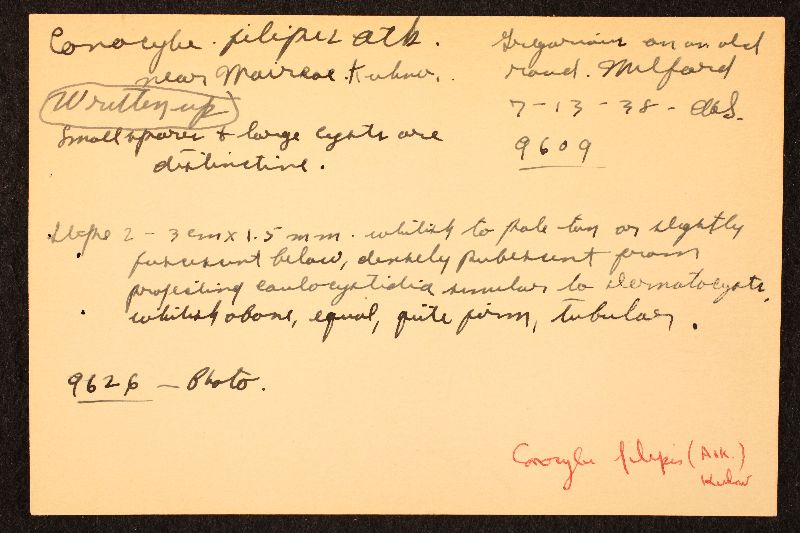 Conocybe filipes Atk.
near Maireae Kuhner.
Written up
Small spores & large cysts are
distinctive.
Gregarious on an old
road. Milford
7-13-38 - AHS.
9609
Stipe 2-3 cm x 1.5 mm. whitish to pale tan or slightly
fuscescent below, densely pubescent from
projecting caulocystidia similar to dermatocysts,
whitish above, equal, quite firm, tubular.
9626 - Photo.
Conocybe filipes (Atk.)